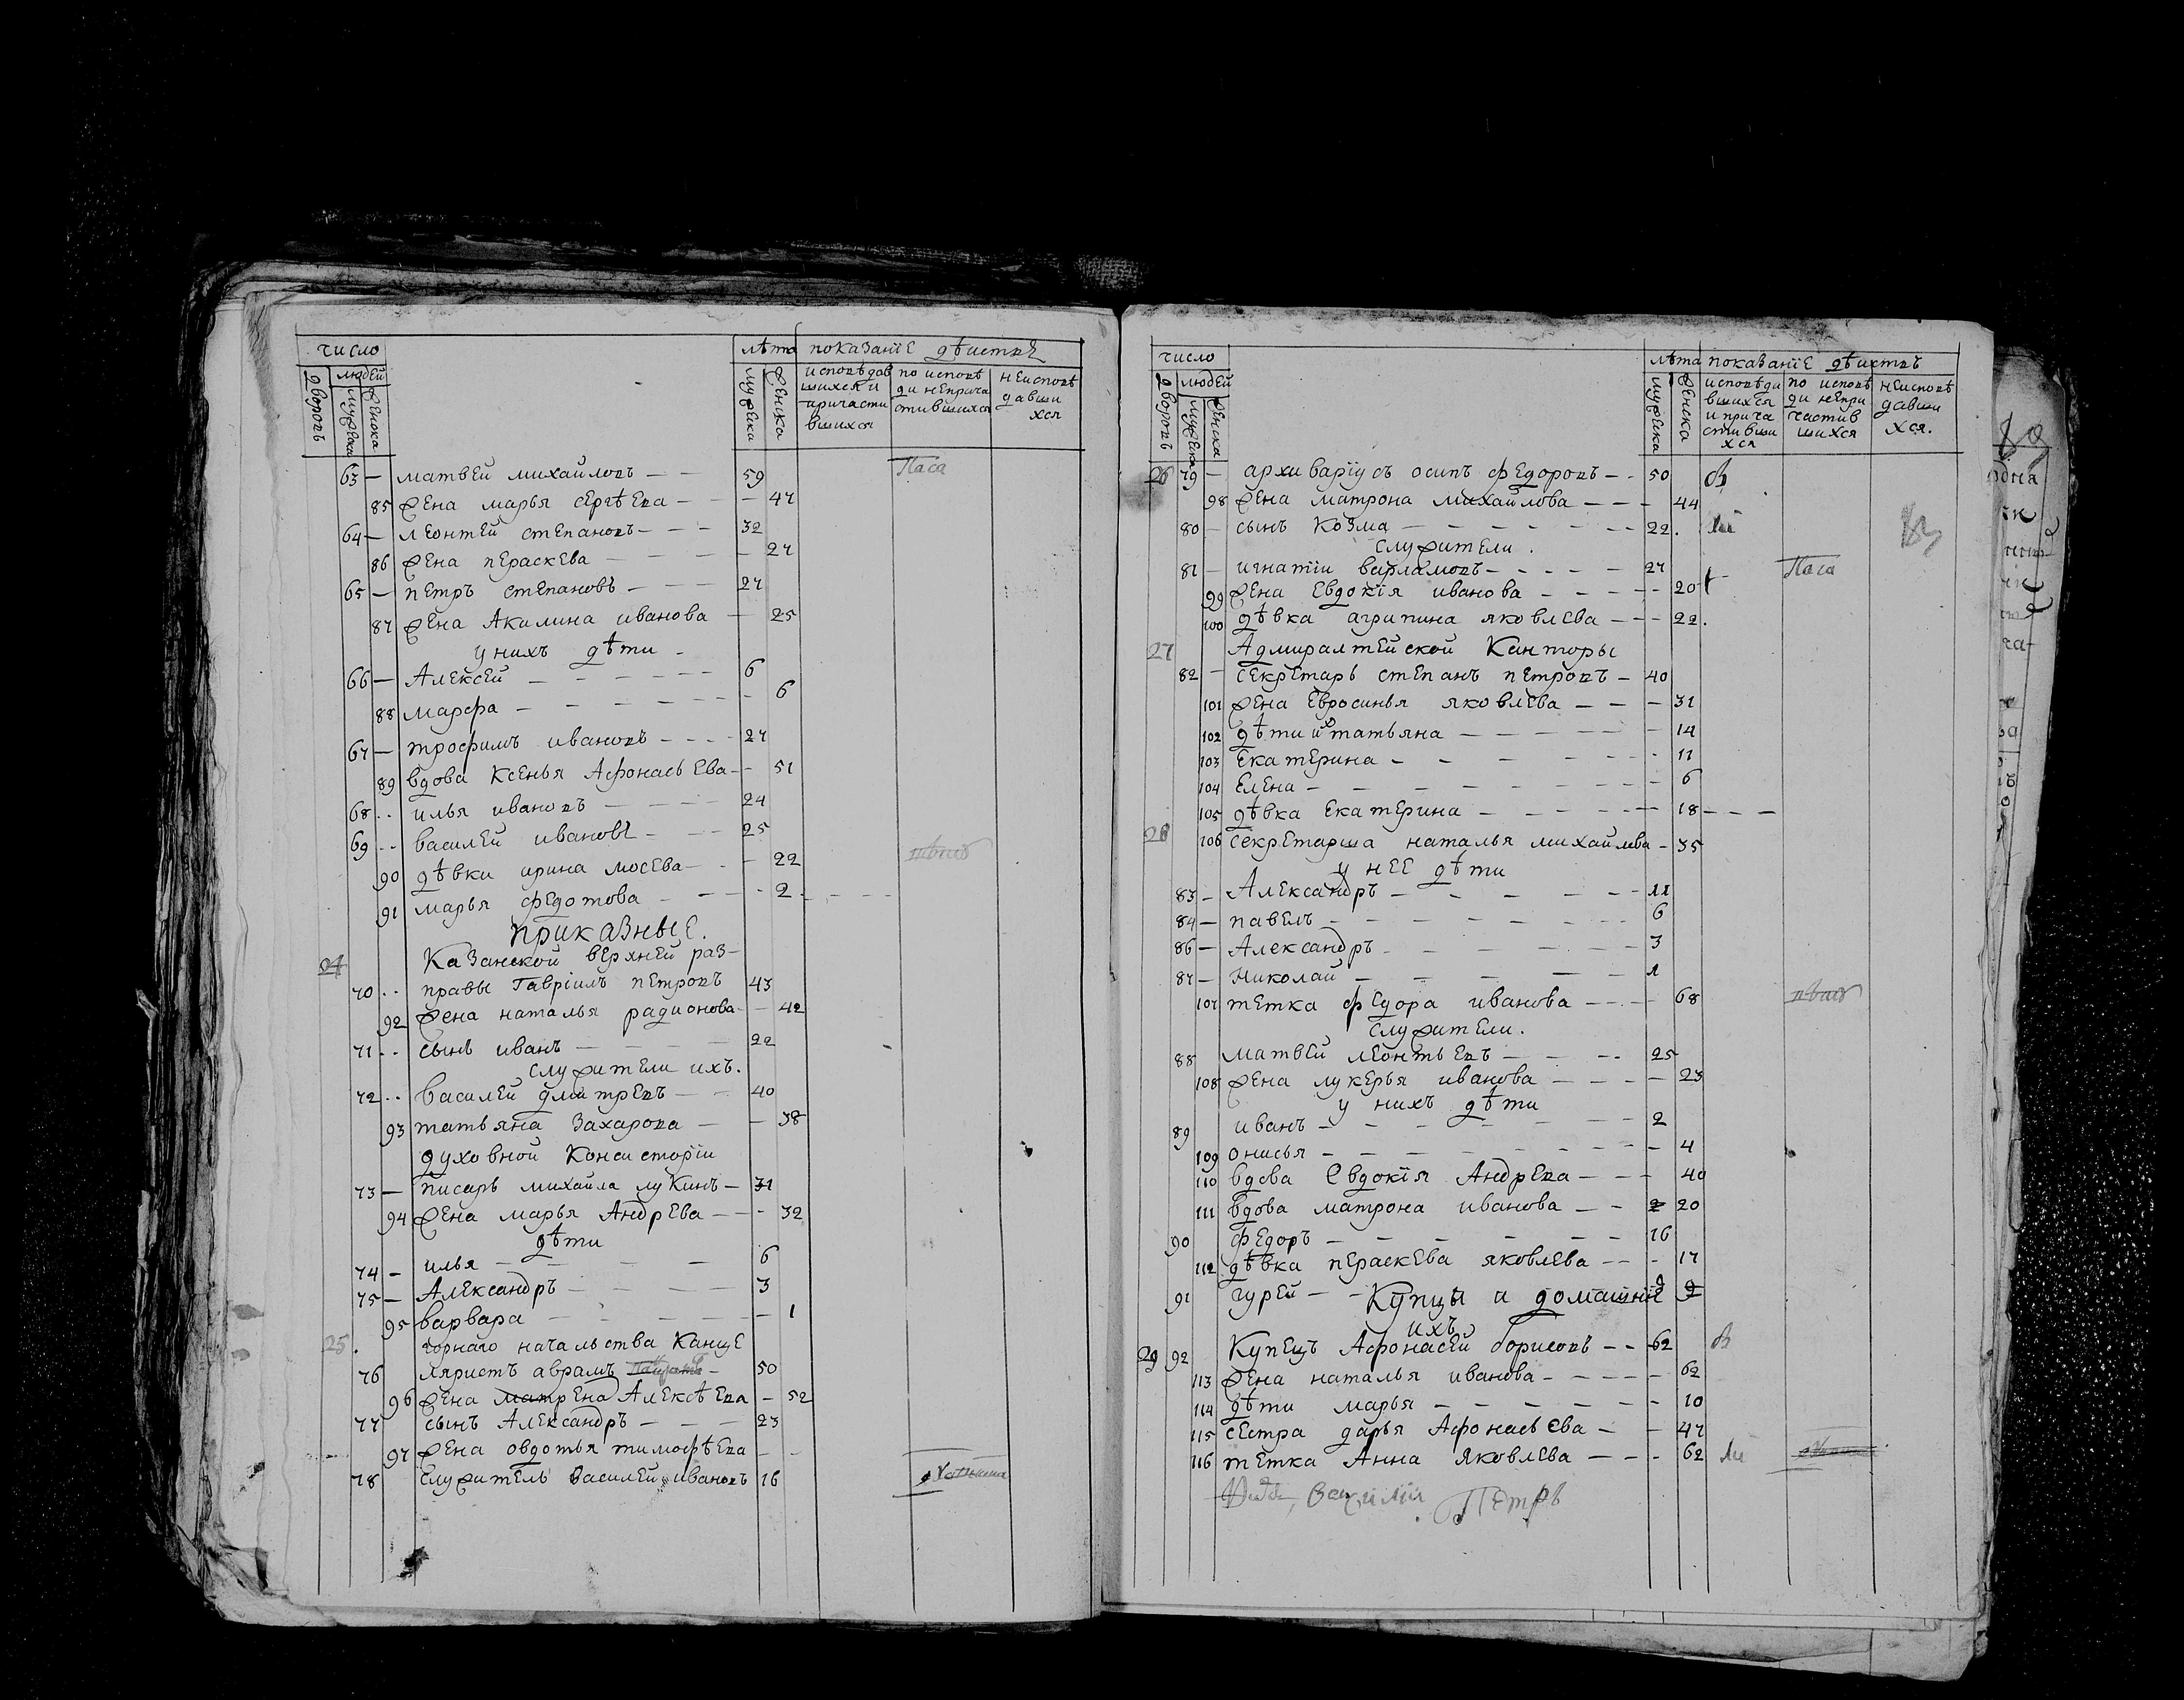 число
лѣта показанїе дѣиствъ
дворовъ
людей
мужеска
женска
мужеска
женска
исповѣдав
шихся и
причасти
вшихся
по исповѣ
ди неприча
стившихся
неисповѣ
давши
хся
63 — матвей михайловъ — — 59
85 жена марья сергѣева — — — 47
64 — леонтей степановъ — — — 32
86 жена пераскева — — — — 27
65 — петръ степановъ — — — 27
87 жена Акилина иванова — 25
у нихъ дѣти
66 — Алексей — — — — — 6
88 марфа — — — — — — 6
67 — трофимъ ивановъ — — — 27
89 вдова Ксенья Афонасьева — 51
68 .. илья ивановъ — — — — 24
69 .. василей ивановъ — — — 25
90 дѣвки ирина мосева — — 22
91 марья федотова — — — 2
приказные.
24 Казанской верхней раз-
70 .. правы Гаврїилъ петровъ 43
92 жена наталья радионова — 42
71 .. сынъ иванъ — — — — 22
служители ихъ.
72 .. василей дмитревъ — — 40
93 татьяна захарова — — 38
духовной Консисторїи
73 — писарь михайла лукинъ — 31
94 жена марья Андрева — — — 32
дѣти
74 — илья — — — — 6
75 — Александръ — — — — 3
95 варвара — — — — — — 1
25. горнаго началъства Канце
76 ляристъ аврамъ — 50
96 жена матрена Алексѣева — 52
77 сынъ Александръ — — — 23
97 жена овдотья тимофѣева — —
78 служитель василей ивановъ 16
число
лѣта показанїе дѣиствъ
дворовъ
людей
мужеска
женска
мужеска
женска
исповѣди
вшихся
и прича
стивши
хся
по исповѣ
ди непри
частив
шихся
неисповѣ
давши
хся.
26 79 — архиварїусъ осипъ федоровъ — — 50
98 жена матрона михайлова — — — 44
80 — сынъ козма — — — — — — 22.
служители.
81 — игнатїи варламовъ — — — — — 27
99 жена Евдокїя иванова — — — — 20
100 дѣвка агрипина яковлева — — — 22.
27 Адмиралтейской Канторы
82 — секретарь степанъ петровъ — 40
101 жена Евросинья яковлева — — — 31
102 дѣти их татьяна — — — — — — 14
103 Екатерина — — — — — — 11
104 Елена — — — — — — — — 6
105 дѣвка Екатерина — — — — — — 18 — — —
28 106 секретарша наталья михайлова — 35
у нее дѣти
83 — Александръ — — — — — — 11
84 — павелъ — — — — — — — 6
86 — Александръ — — — — — — 3
87 — Николай — — — — — 1
107 тетка федора иванова — — — — 68
служители.
88 матвей леонтьевъ — — — — 25
108 жена лукерья иванова — — — — 23
у нихъ дѣти
89 иванъ — — — — — — — 2
109 онисья — — — — — — — — 4
110 вдова Евдокїя Андрева — — — 40
111 вдова матрона иванова — — 2 20
90 федоръ — — — — — — 16
112 дѣвка пераскева яковлева — — — 17
91 гурей — — 9
Купцы и домашнїе
ихъ
29 92 Купецъ Афонасей борисовъ — — 62
113 жена наталья иванова — — — — — 62
114 дѣти марья — — — — — — — 10
115 сестра дарья Афонасьева — — 47
116 тетка Анна Яковлева — — — — 62
Петръ